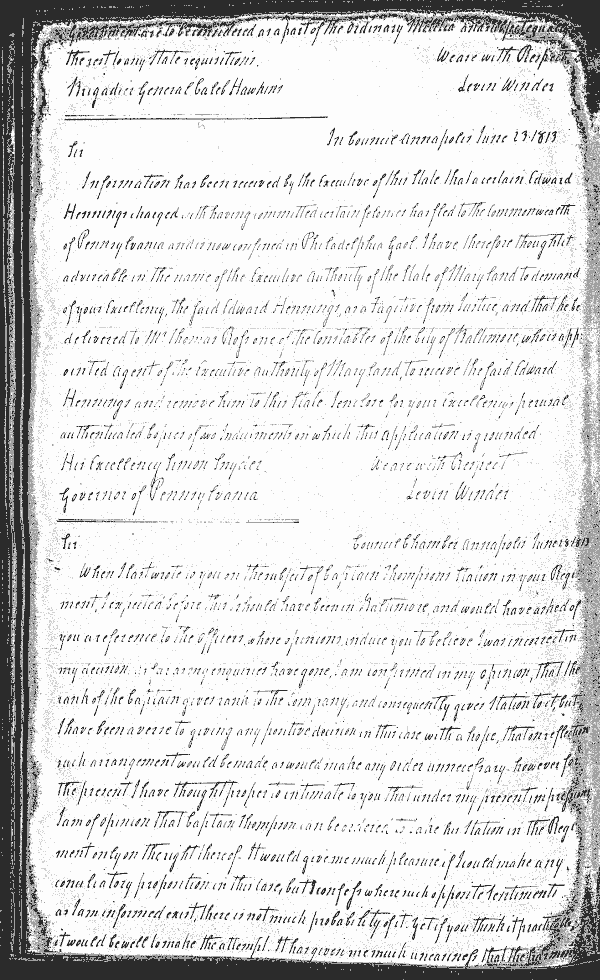 Government are to be considered as a part of the Ordinary Militia and
the rest to any State requisitions. We are with Respect
Brigadier General Caleb Hawkins Levin Winder
In Council Annapolis June 23. 1813
Sir
Information has been received by the Executive of this State that a certain Edward
Hennings charged with having committed certain felonies has fled to the Commonwealth
of Pennsylvania and is now confined in Philadelphia Gaol. I have therefore thought it
adviseable in the name of the Executive Authority of the State of Maryland to demand
of your Excellency, the said Edward Hennings, as a fugitive from Justice, and that he be
delivered to Mr Thomas Ross one of the Constables of the City of Baltimore, who is app-
ointed agent of the Executive authority of Maryland, to receive the said Edward
Hennings and remove him to this State. I enclose for your Excellency's perusal
authenticated Copies of two Indictments on which this application is grounded
His Excellency Simon Snyder We are with Respect
Governor of Pennsylvania Levin Winder
Sir Council Chamber Annapolis June 28 1813
When I last wrote to you on the subject of Captain Thompsons Station in your Regi-
ment, I expected before this I should have been in Baltimore, and would have asked of
you a reference to the Officers, whose opinions, induce you to believe I was incorrect in
my decision. as far as my enquiries have gone, I am confirmed in my opinion, that the
rank of the Captain gives rank to the Company, and consequently gives Station to it, but
I have been averse to giving any positive decision in this case with a hope, that on reflection
such arrangement would be made as would make any order unnecessary. however for
the present I have thought proper to intimate to you that under my present impressions
I am of opinion that Captain Thompson can be ordered to take his Station in the Regi-
ment only on the right thereof. It would give me much pleasure if I could make any
conciliatory proposition in this case, but I confess where such opposite Sentiments
as I am informed exist, there is not much probability of it. Yet if you think it practicable
it would be well to make the attempt. It has given me much uneasiness that the harmony